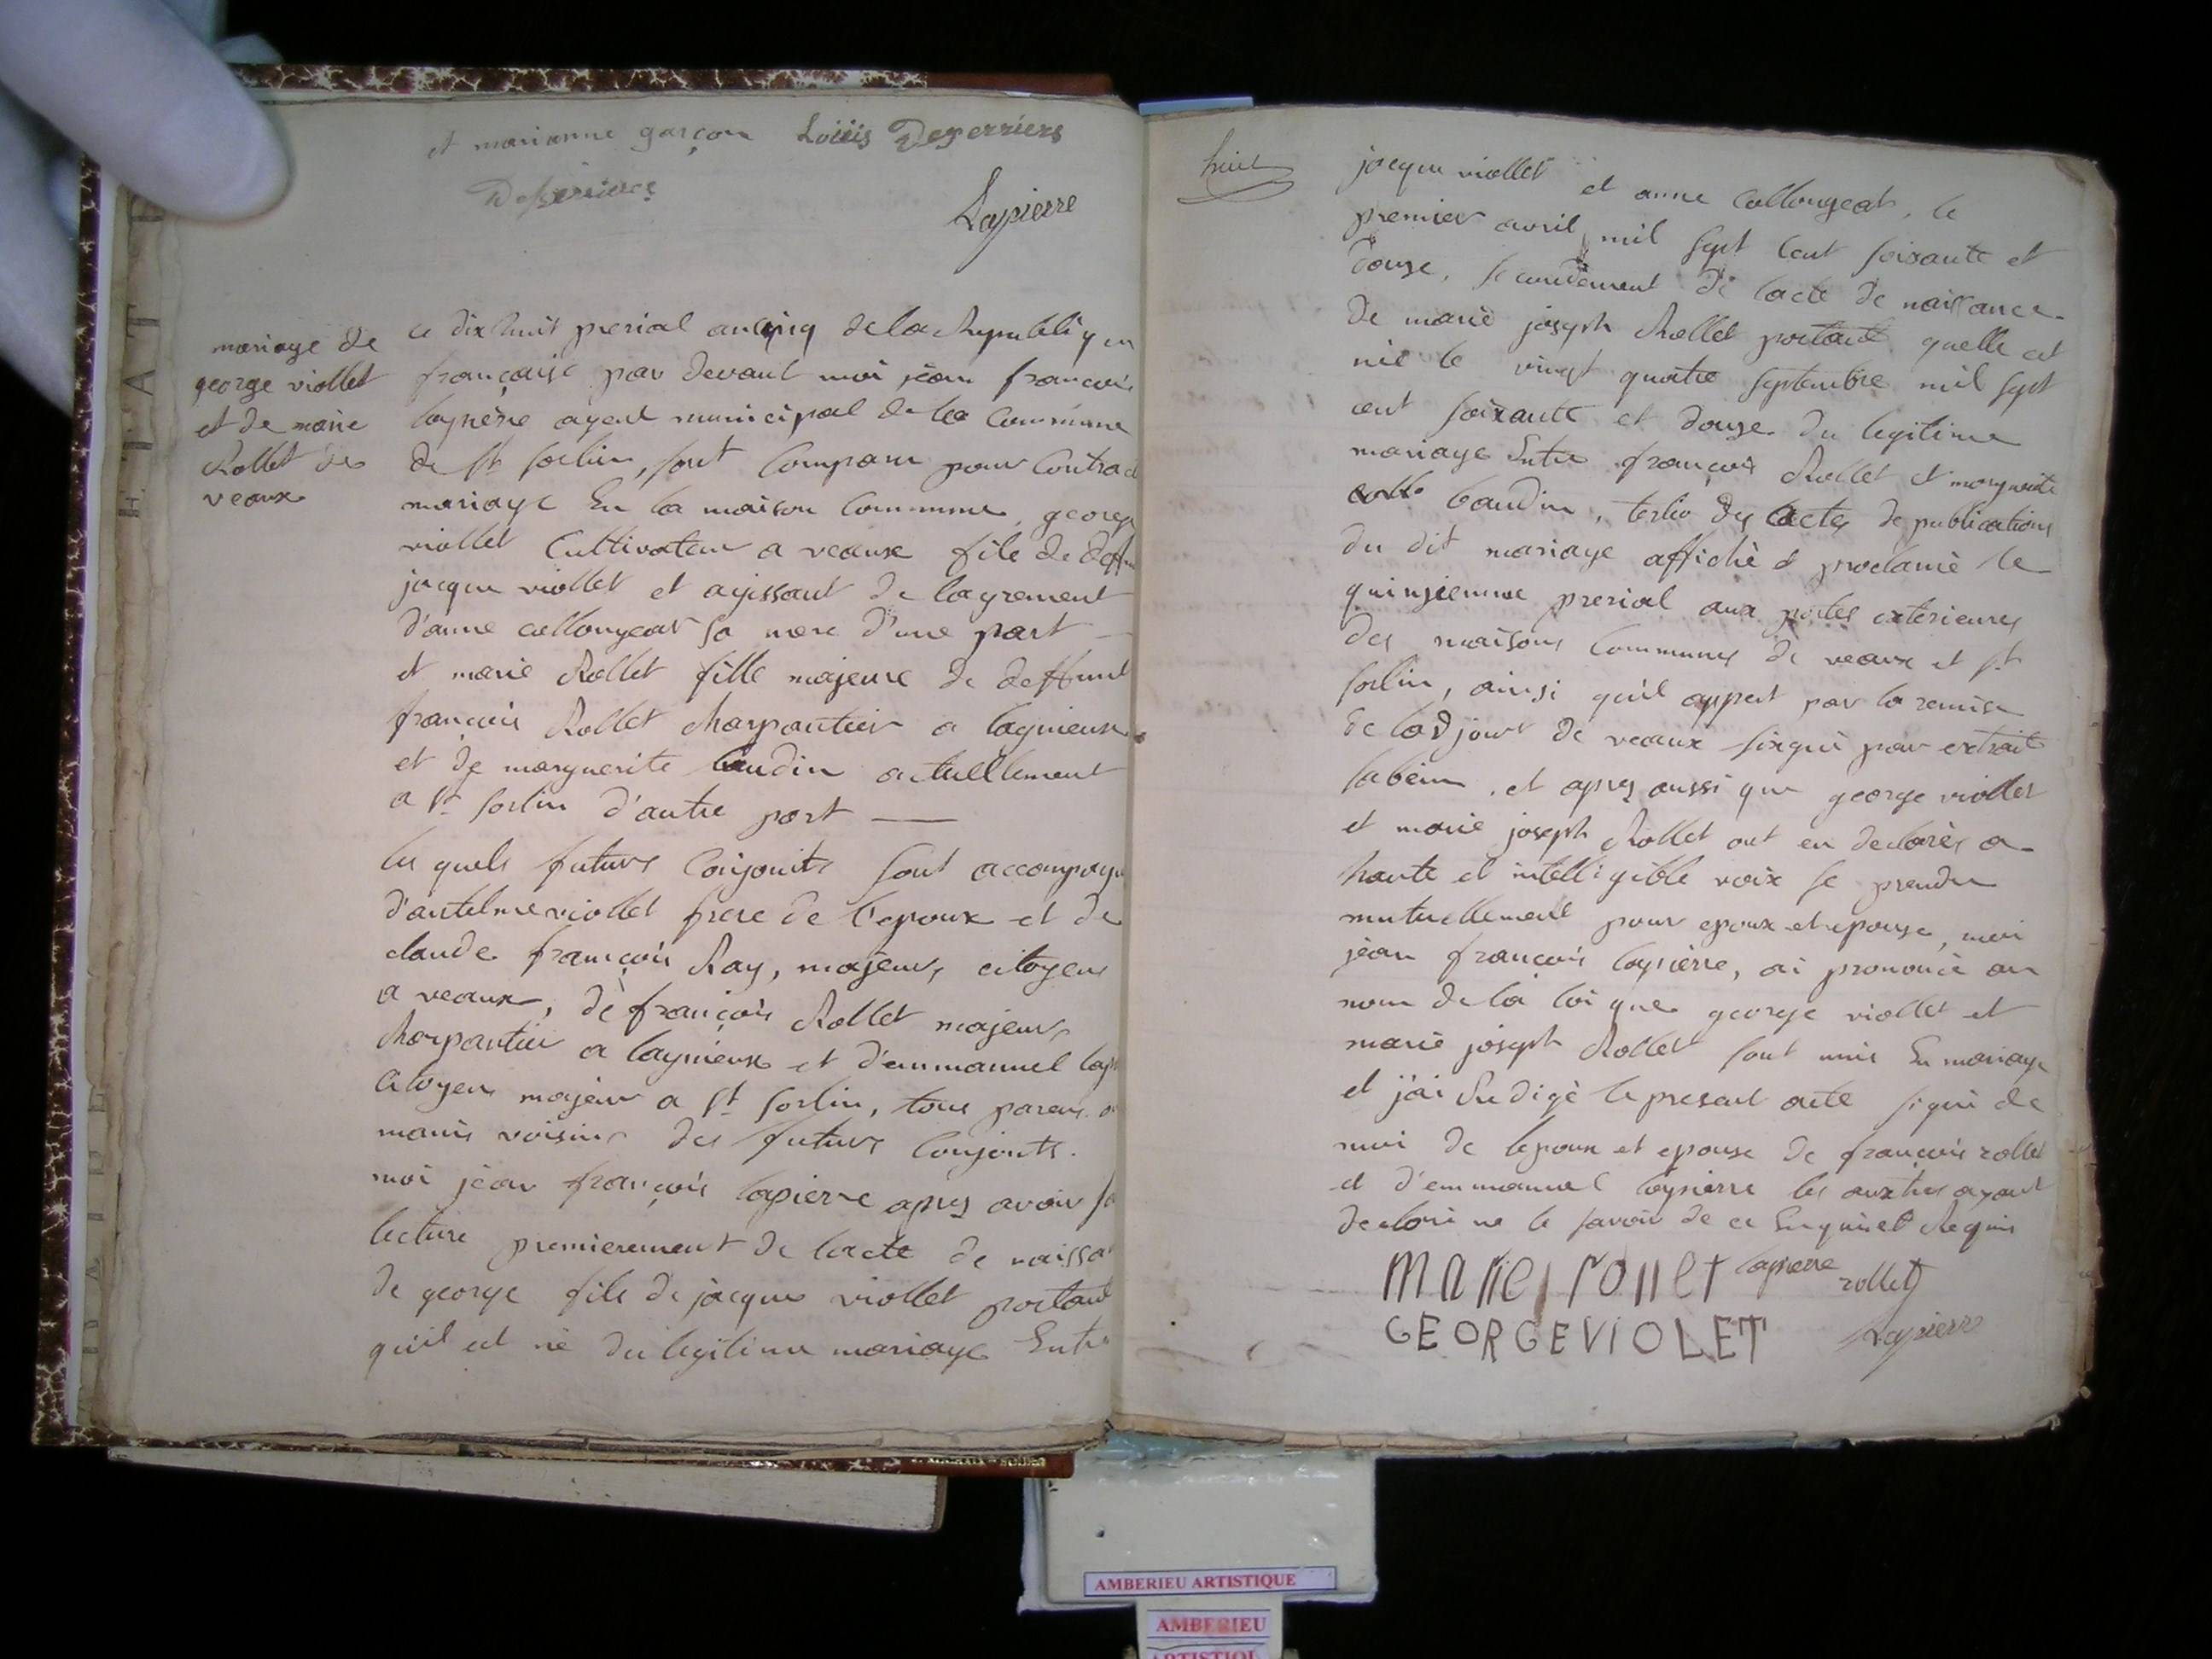 et marianne garçon Loüis Deserriers
Deserriers
Lapierre
mariage de
george viollet
et de marie
Rollet de
veaux
ce dix huit prerial an cinq de la Republique
française par devant moi jèan françois
lapierre agent municipal de la Commune
de St sorlin, sont Comparu pour Contract
mariage En la maison Commune, george
viollet Cultivateur a veaux fils de deffu
jacque viollet et agissant de lagrement
d'anne collongeat sa mere d'une part
et marie Rollet fille majeure de deffunt
françois Rollet charpantier a lagnieux
et de marguerite baudin actuellement
a St sorlin d'autre part
les quels futurs Conjoints sont accompagn
d'antelme viollet frere de l'epoux et de
claude françois Ray, majeurs citoyens
a veaux, dè françois Rollet majeur
charpantier a lagnieux et d'emmanuel lap
Citoyen majeur a St sorlin, tous parens o
mamis voisins des futurs Conjoints.
moi jèan françois lapierre apres avoir fa
lecture premierement de lacte de naissa
de george fils de jacque viollet portant
quil est nè du legitime mariage Entre
huit
jacque viollet et anne Collongeat, le
premier avril mil sept Cent soixante et
douze, secondement de lacte de naissance
de marie joseph Rollet portant quelle est
neè le vingt quatre septembre mil sept
cent soixante et douze du legitime
mariage Entre françois Rollet et marguerite
baudin, tertio des actes de publications
du dit mariage affichè & proclamè le
quinzienme prerial aux portes exterieures
des maisons Communes de veaux et St
sorlin, ainsi quil appert par la remise
de ladjoint de veaux signè par extrait
et apres aussi que george viollet
et marie joseph Rollet ont eu declarès a
haute et intelligible voix se prendre
mutuellement pour epoux et epouse, moi
jèan françois lapierre, ai prononcè au
nom de la loi que george viollet et
marie joseph Rollet sont unis En mariage
et j'ai Redigè le present acte signè de
moi de lepoux et epouse de françois rollet
et d'emmanuel lapierre les auxtres ayant
declarè ne le savoir de ce Enquis et Requis
Marie rollet lapierre rollet
GEORGE VIOLET Lapierre
AMBERIEU ARTISTIQUE
AMBERIEU
ARTISTIQU